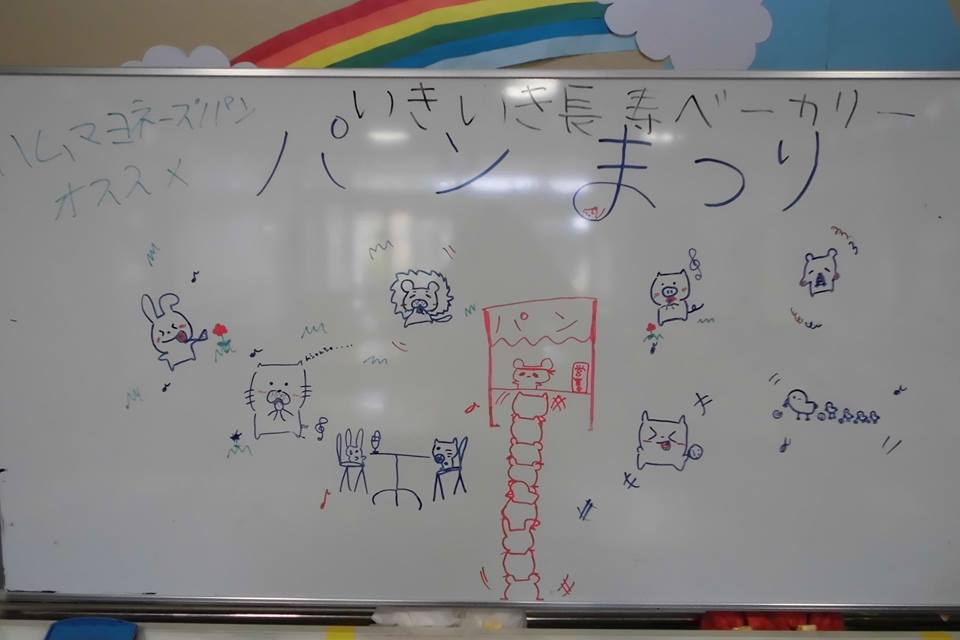 いきいき長寿ベーカリー
パンまつり
ハムマヨネーズパン
オススメ
パン
営業